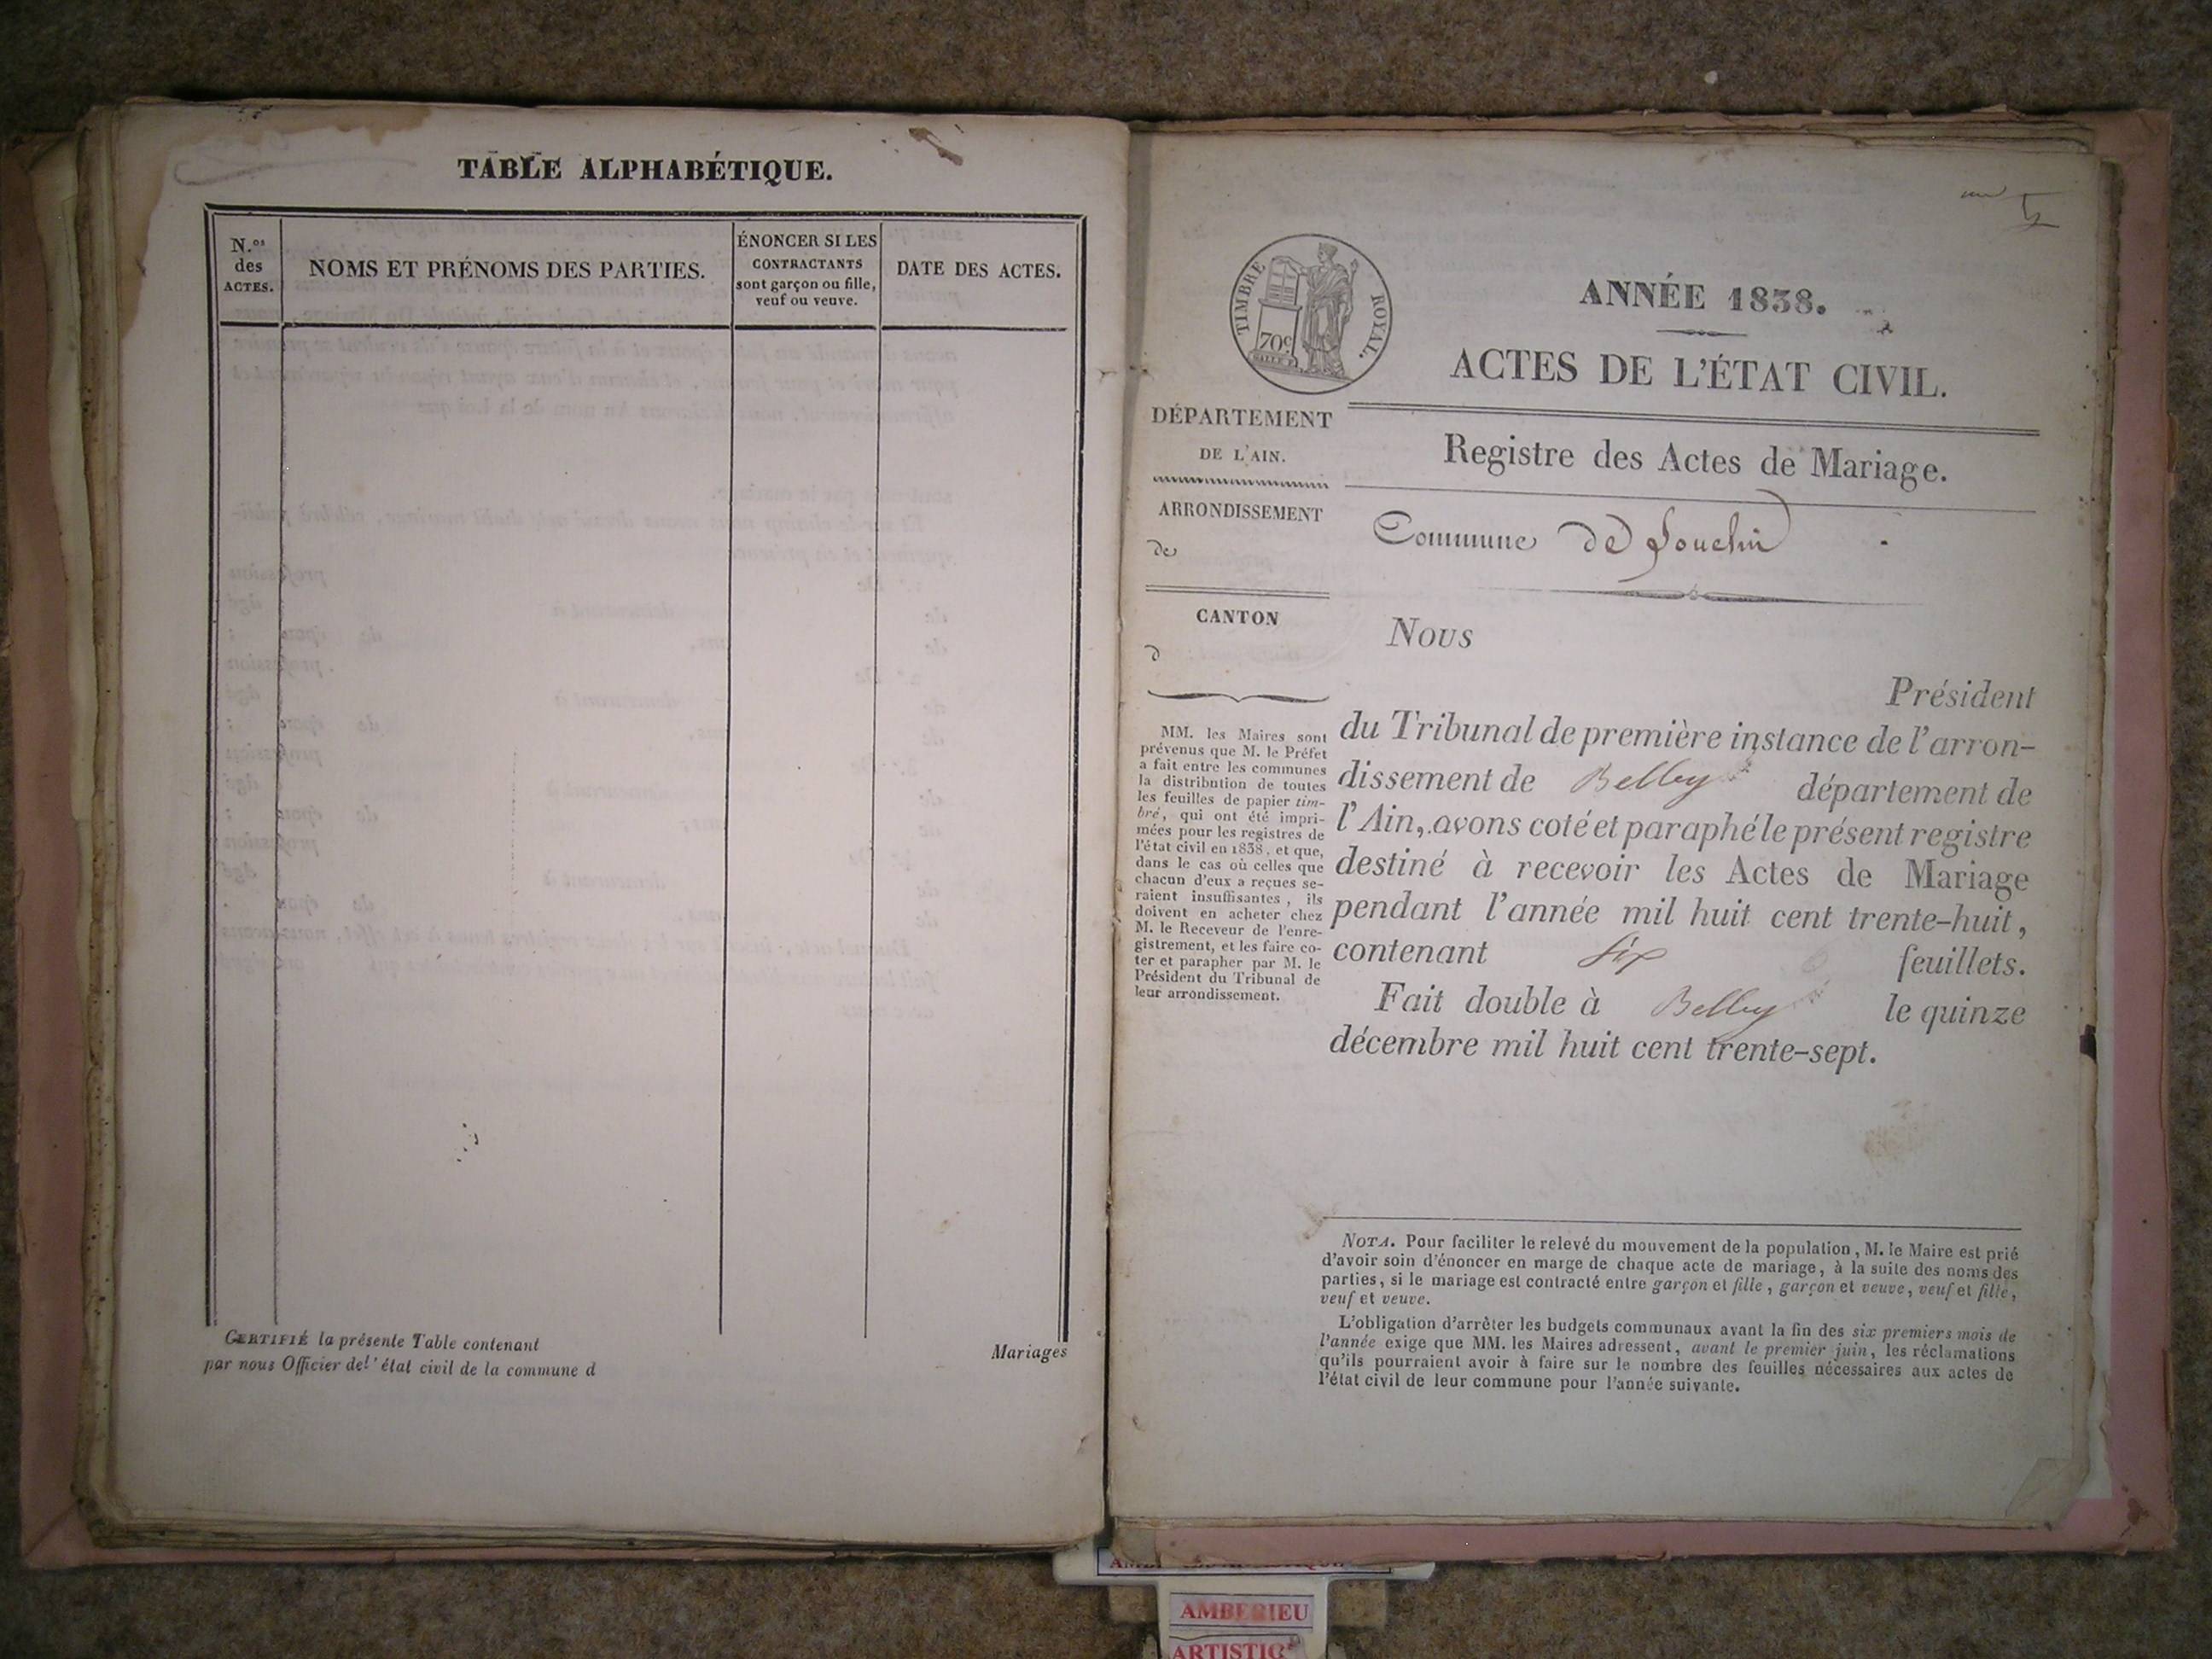 TABLE ALPHABÉTIQUE.
N.os
des
ACTES.
NOMS ET PRÉNOMS DES PARTIES.
ÉNONCER SI LES
CONTRACTANTS
sont garçon ou fille,
veuf ou veuve.
DATE DES ACTES.
CERTIFIÉ la présente Table contenant Mariages
par nous Officier de l'état civil de la commune d
TIMBRE ROYAL.
70c
ANNÉE 1838.
ACTES DE L'ÉTAT CIVIL.
DÉPARTEMENT
DE L'AIN.
ARRONDISSEMENT
de
CANTON
d
MM. les Maires sont
prévenus que M. le Préfet
a fait entre les communes
la distribution de toutes
les feuilles de papier tim-
bré, qui ont été impri-
mées pour les registres de
l'état civil en 1838, et que,
dans le cas où celles que
chacun d'eux a reçues se-
raient insuffisantes, ils
doivent en acheter chez
M. le Receveur de l'enre-
gistrement, et les faire co-
ter et parapher par M. le
Président du Tribunal de
leur arrondissement.
Registre des Actes de Mariage.
Commune de
Nous
Président
du Tribunal de première instance de l'arron-
dissement de Belley département de
l'Ain, avons coté et paraphé le présent registre
destiné à recevoir les Actes de Mariage
pendant l'année mil huit cent trente-huit,
contenant six feuillets.
Fait double à Belley le quinze
décembre mil huit cent trente-sept.
NOTA. Pour faciliter le relevé du mouvement de la population, M. le Maire est prié
d'avoir soin d'énoncer en marge de chaque acte de mariage, à la suite des noms des
parties, si le mariage est contracté entre garçon et fille, garçon et veuve, veuf et fille,
veuf et veuve.
L'obligation d'arrêter les budgets communaux avant la fin des six premiers mois de
l'année exige que MM. les Maires adressent, avant le premier juin, les réclamations
qu'ils pourraient avoir à faire sur le nombre des feuilles nécessaires aux actes de
l'état civil de leur commune pour l'année suivante.
AMBERIEU
ARTISTIQ